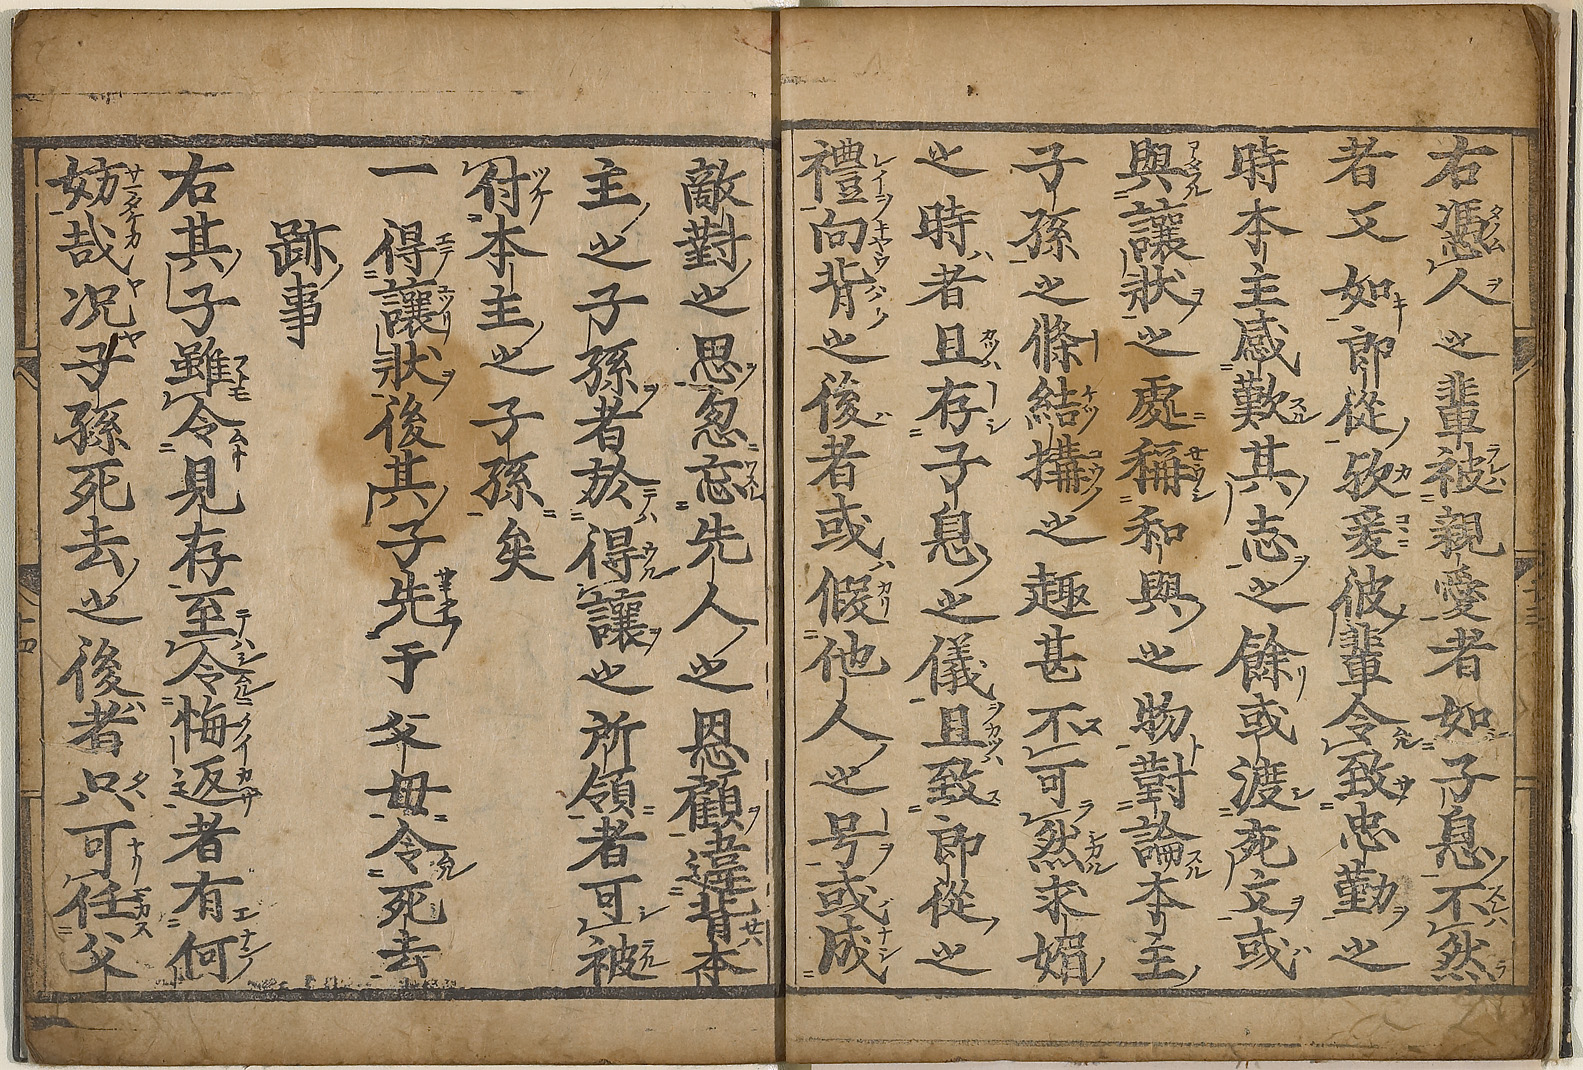 右憑人之輩被親愛者如子息不然
者又如郎從欤爰彼輩令致忠勤之
時本主感歎其志之餘或渡充文或
與讓狀之處稱和與之物對論本主
子孫之條結搆之趣甚不可然求媚
之時者且存子息之儀且致郎從之
禮向背之後者或假他人之号或成
敵對之思忽忘先人之恩顧違背本
主之子孫者於得讓之所領者可被
付本主之子孫矣
一得讓狀後其子先于父母令死去
跡事
右其子雖令見存至令悔返者有何
妨哉况子孫死去之後者只可任父